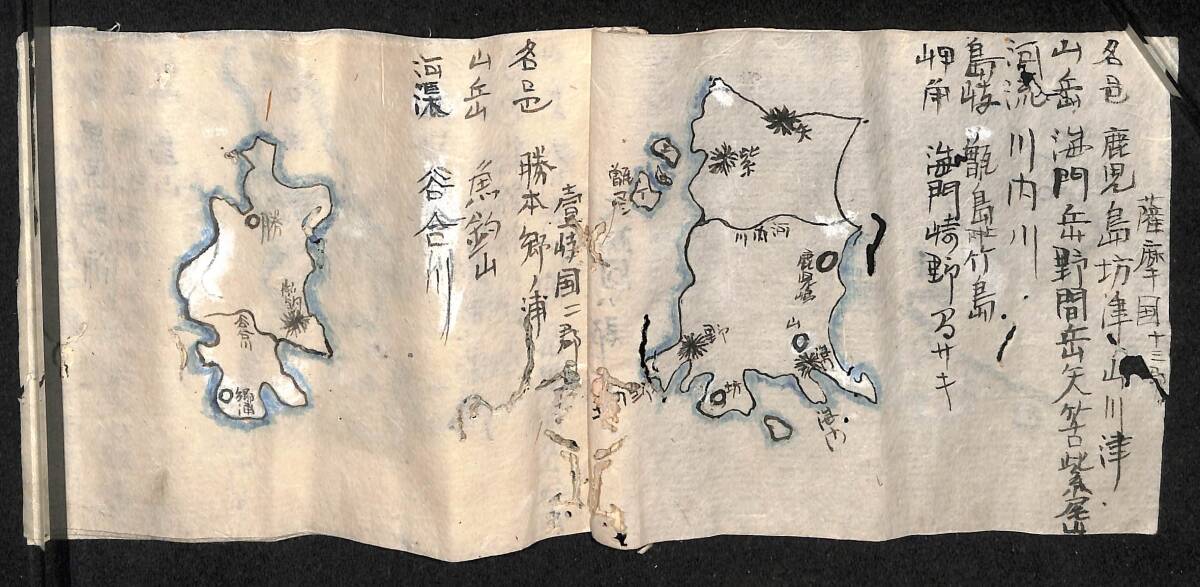 薩摩国十三郡
名邑 鹿児島坊津山川津
山岳 海門岳野間岳矢筈紫尾山
河流 川内川
島岐 甑島 竹島
岬角 海門崎野間サキ
矢
紫
川内河
甑島
鹿児島
山
野
坊
海門
野
壹岐国二郡
名邑 勝本郷ノ浦
山岳 魚釣山
河渠 谷合川
勝
魚釣
谷合川
郷浦